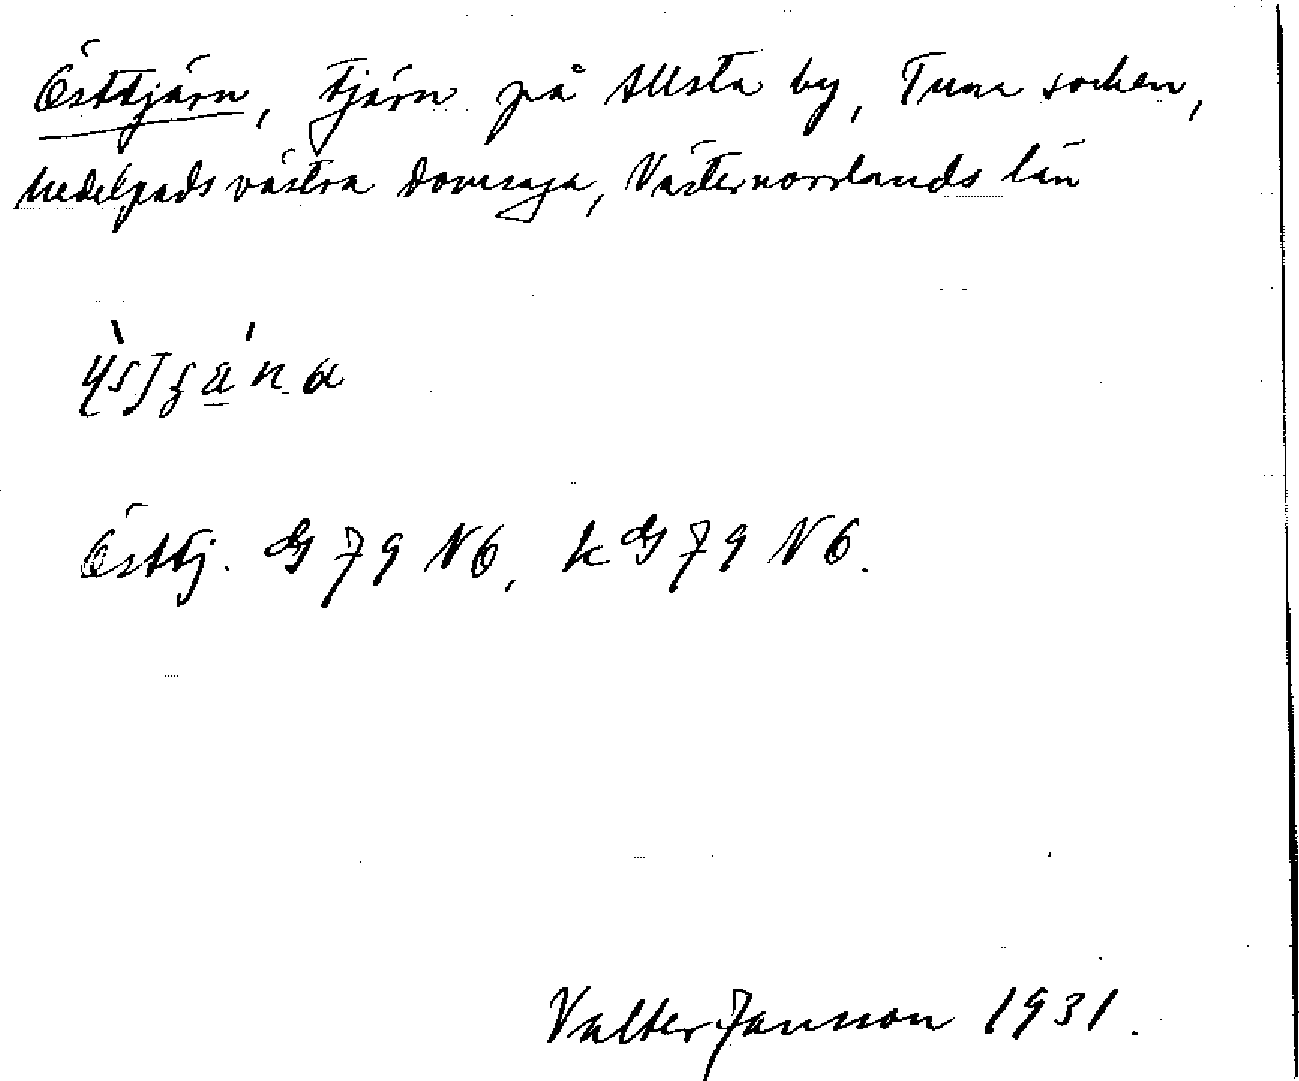 Östtjärn, tjärn på Allsta by, Tuna socken,
Medelpads västra domsaga, Västernorrlands län
Östtj. G 79 N6, k G 79 N6.
Valter Jansson 1931.